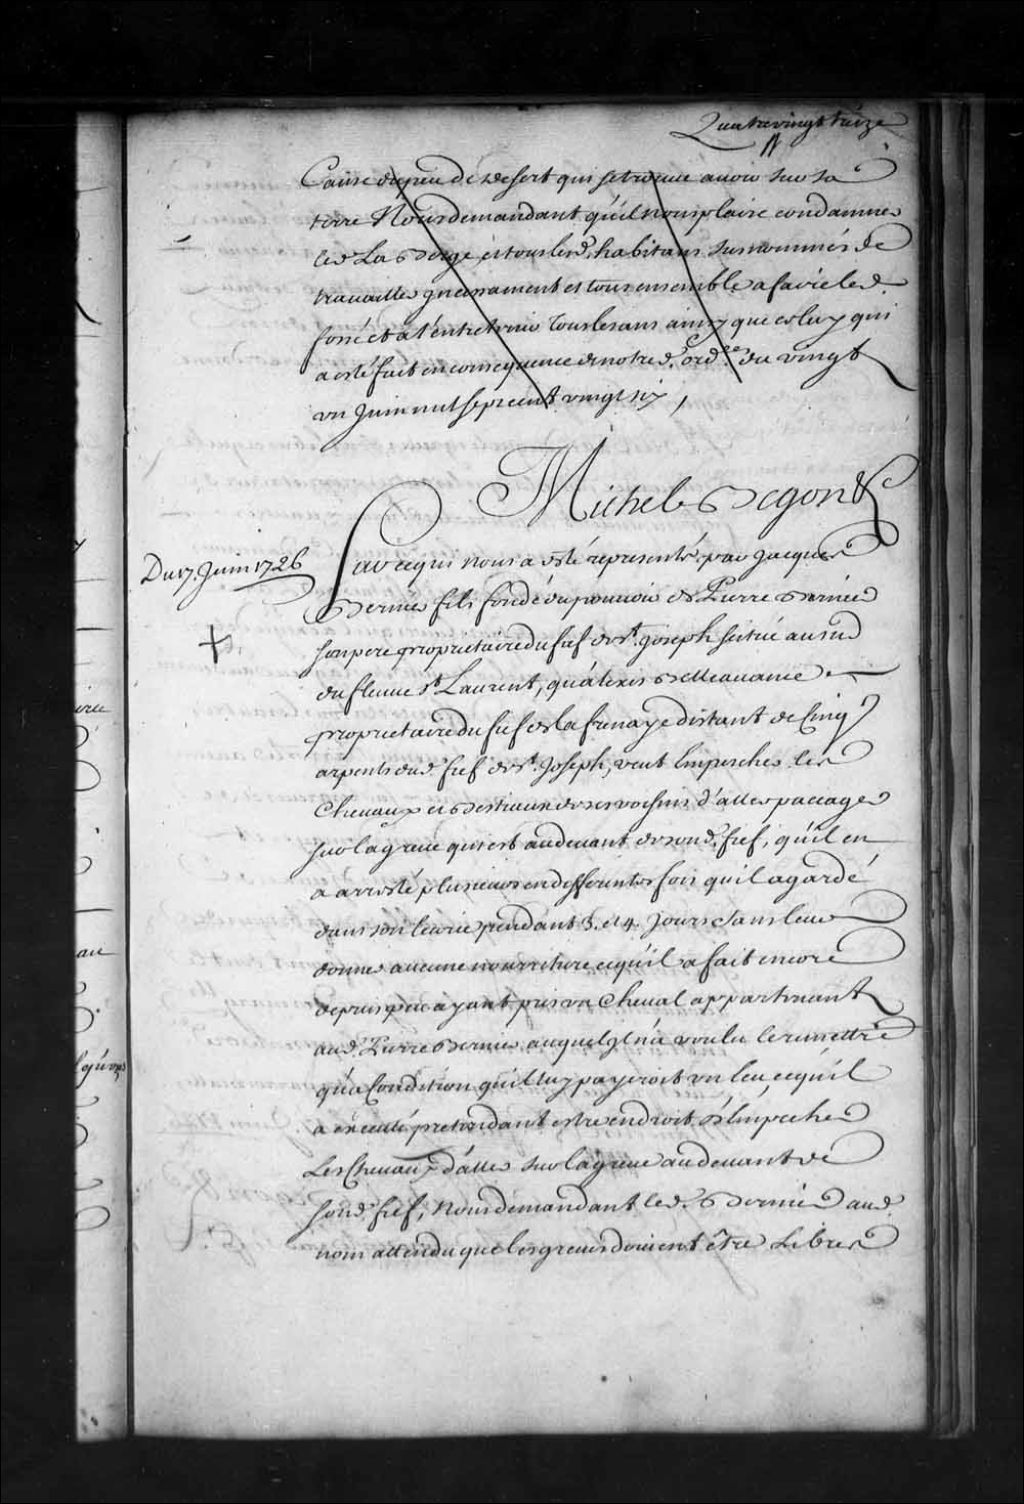 Quatrevingt treize
Cause du peu de desert qui se trouve avoir sur sa
terre Nous demandant qu'il nous plaise condamner
led. La Berge et tous lesd. habitans susnommés de
travailler incessament et tous ensemble a faire led.
fossé et a l'entretenir tous les ans ainsy que celuy qui
a esté fait en consequence de notre d. ord.ce du vingt
un Juin mil sept cent vingt six,
Michel Begon &c
Du 17. Juin 1726
Sur ce qui nous a esté representé par Jacques
Bernier fils fondé du pouvoir de Pierre Bernier
son pere proprietaire du fief de St. Joseph scitué au sud
du fleuve St Laurent, qu'alexis
proprietaire du fief de la frenaye distant de Cinq
arpents dud. fief de St. Joseph, veut Empescher les
Chevaux et Bestiaux de ses voisins d'aller paccager
sur la greve qui est au devant de sond. fief, qu'il en
a arresté plusieurs en differentes fois qu'il a gardé
dans son pendant 3. et 4. Jours sans leur
donner aucune nourriture ce qu'il a fait encore
depuis peu ayant pris un Cheval appartenant
aud. Pierre Bernier auquel il n'a voulu le remettre
qu'a Condition qu'il luy payeroit un Ecu, ce qu'il
a executé pretendant estre en droit d'Empecher
Les Chevaux d'aller sur la greve au devant de
sond. fief, Nous demandant led. Bernier aud.
nom attendu que les greves doivent être Libres